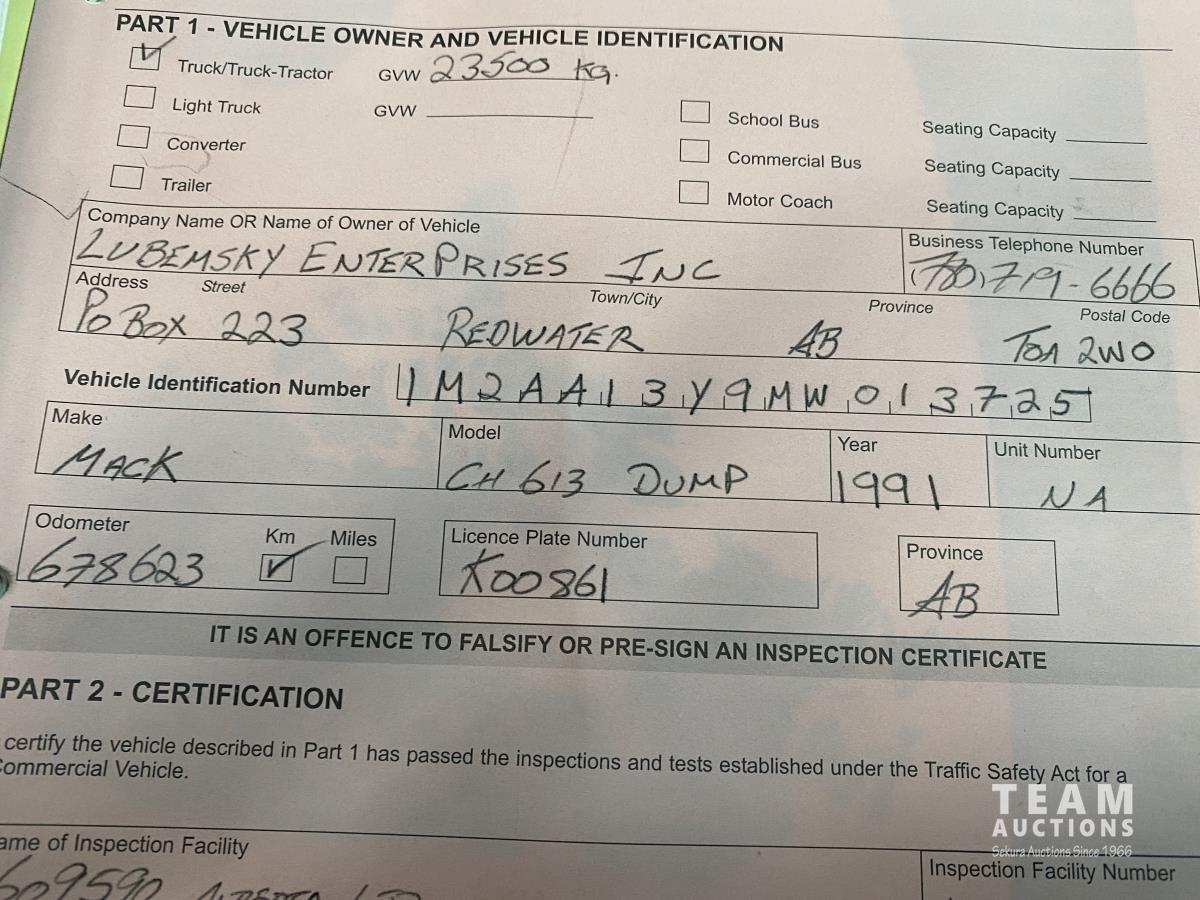 PART 1 - VEHICLE OWNER AND VEHICLE IDENTIFICATION
Truck/Truck-Tractor GVW 23500 Kg.
Light Truck GVW
School Bus Seating Capacity
Converter
Commercial Bus Seating Capacity
Trailer
Motor Coach Seating Capacity
Company Name OR Name of Owner of Vehicle Business Telephone Number
LUBEMSKY ENTERPRISES INC (780) 719-6666
Address Street Town/City Province Postal Code
PO BOX 223 REDWATER AB T0A 2W0
Vehicle Identification Number 1M2AA13Y9MW013725
Make Model Year Unit Number
MACK CH 613 DUMP 1991 NA
Odometer Km Miles Licence Plate Number Province
678623 K00861 AB
IT IS AN OFFENCE TO FALSIFY OR PRE-SIGN AN INSPECTION CERTIFICATE
PART 2 - CERTIFICATION
certify the vehicle described in Part 1 has passed the inspections and tests established under the Traffic Safety Act for a
Commercial Vehicle.
TEAM
AUCTIONS
Sekura Auctions Since 1966
ame of Inspection Facility Inspection Facility Number
609590 ALBERTA LTD